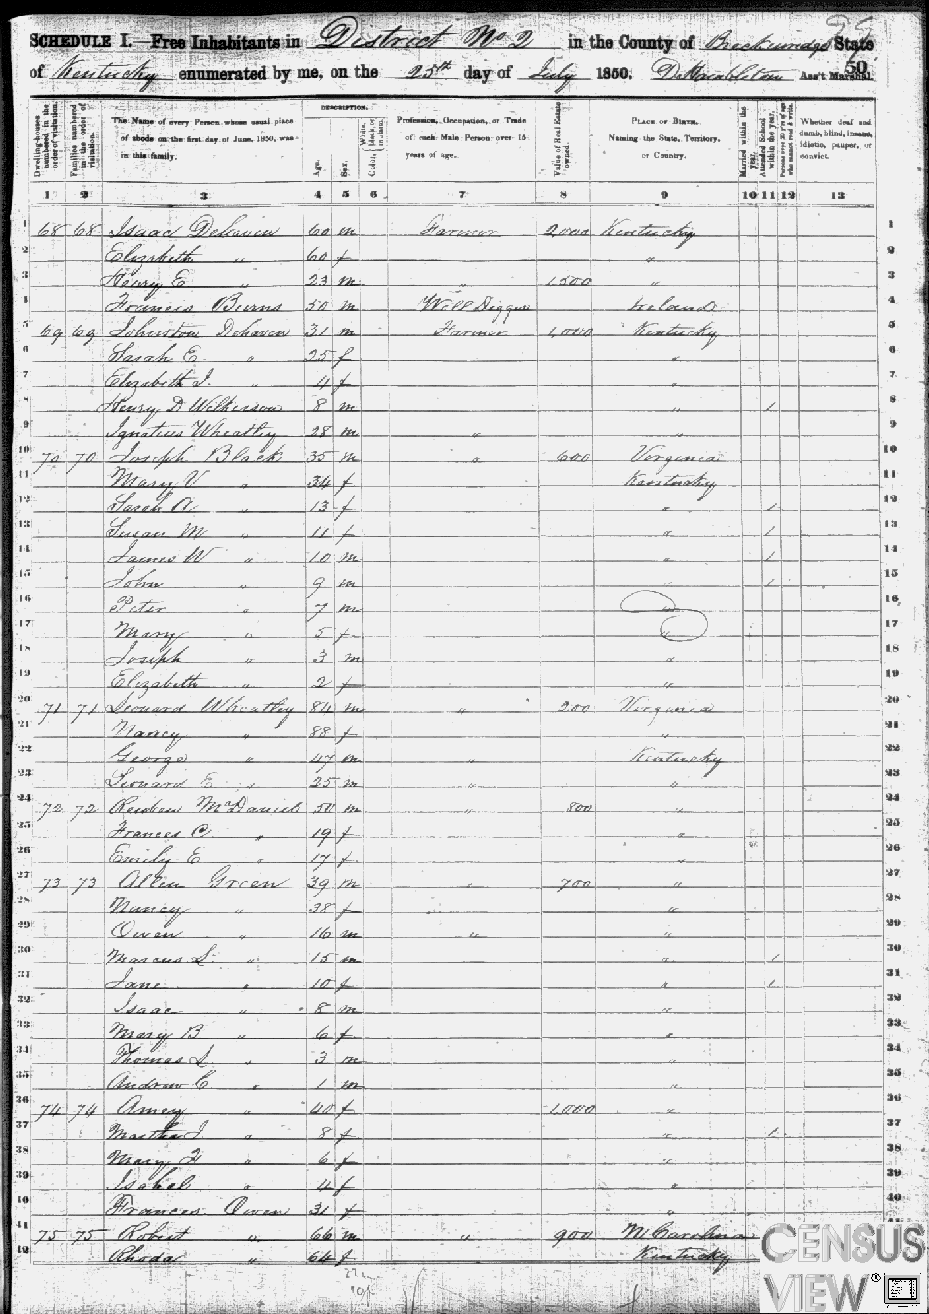 SCHEDULE I.—Free Inhabitants in District No 2 in the County of Breckenridge State
of Kentucky enumerated by me, on the 25th day of July 1850. Ass't Marshal.
50
DESCRIPTION.
Dwelling-houses numbered in the order of visitation.
Families numbered in the order of visitation.
The Name of every Person whose usual place of abode on the first day of June, 1850, was in this family.
Age.
Sex.
Color, White, black, or mulatto.
Profession, Occupation, or Trade of each Male Person over 15 years of age.
Value of Real Estate owned.
PLACE OF BIRTH. Naming the State, Territory, or Country.
Married within the year.
Attended School within the year.
Persons over 20 y'rs of age who cannot read & write.
Whether deaf and dumb, blind, insane, idiotic, pauper, or convict.
1 2 3 4 5 6 7 8 9 10 11 12 13
1 68 68 Isaac Dehaven 60 m Farmer 2,000 Kentucky 1
2 Elizabeth " 60 f " 2
3 Henry E " 23 m " 1,500 " 3
4 Francis Burns 50 m Well Digger Ireland 4
5 69 69 Johnston Dehaven 31 m Farmer 1,000 Kentucky 5
6 Sarah E " 25 f " 6
7 Elizabeth J. " 4 f " 7
8 Henry D Wilkerson 8 m " 1 8
9 Ignatius Wheatley 28 m " " 9
10 70 70 Joseph Black 35 m " 600 Virginia 10
11 Mary V " 34 f Kentucky 11
12 Sarah A. " 13 f " 1 12
13 Susan M " 11 f " 1 13
14 James W " 10 m " 1 14
15 John " 9 m " 1 15
16 Peter " 7 m " 16
17 Mary " 5 f " 17
18 Joseph " 3 m " 18
19 Elizabeth " 2 f " 19
20 71 71 Leonard Wheatley 84 m " 200 Virginia 20
21 Nancy " 88 f " 21
22 George " 47 m " Kentucky 22
23 Leonard E " 25 m " " 23
24 72 72 Reuben McDaniels 50 m " 800 " 24
25 Frances C " 19 f " 25
26 Emily E " 17 f " 26
27 73 73 Allen Green 39 m " 700 " 27
28 Nancy " 38 f " 28
29 Owen " 16 m " " 29
30 Marcus L " 15 m " 1 30
31 Jane " 10 f " 1 31
32 Isaac " 8 m 32
33 Mary B " 6 f " 33
34 Thomas L " 3 m " 34
35 Andrew C " 1 m " 35
36 74 74 Amey " 40 f 1,000 " 36
37 Martha J " 8 f " 1 37
38 Mary F " 6 f " 38
39 Isabel " 4 f " 39
40 Frances Owen 31 f " 40
41 75 75 Robert " 66 m " 900 N Carolina 41
42 Rhoda " 64 f Kentucky
CENSUS
VIEW®